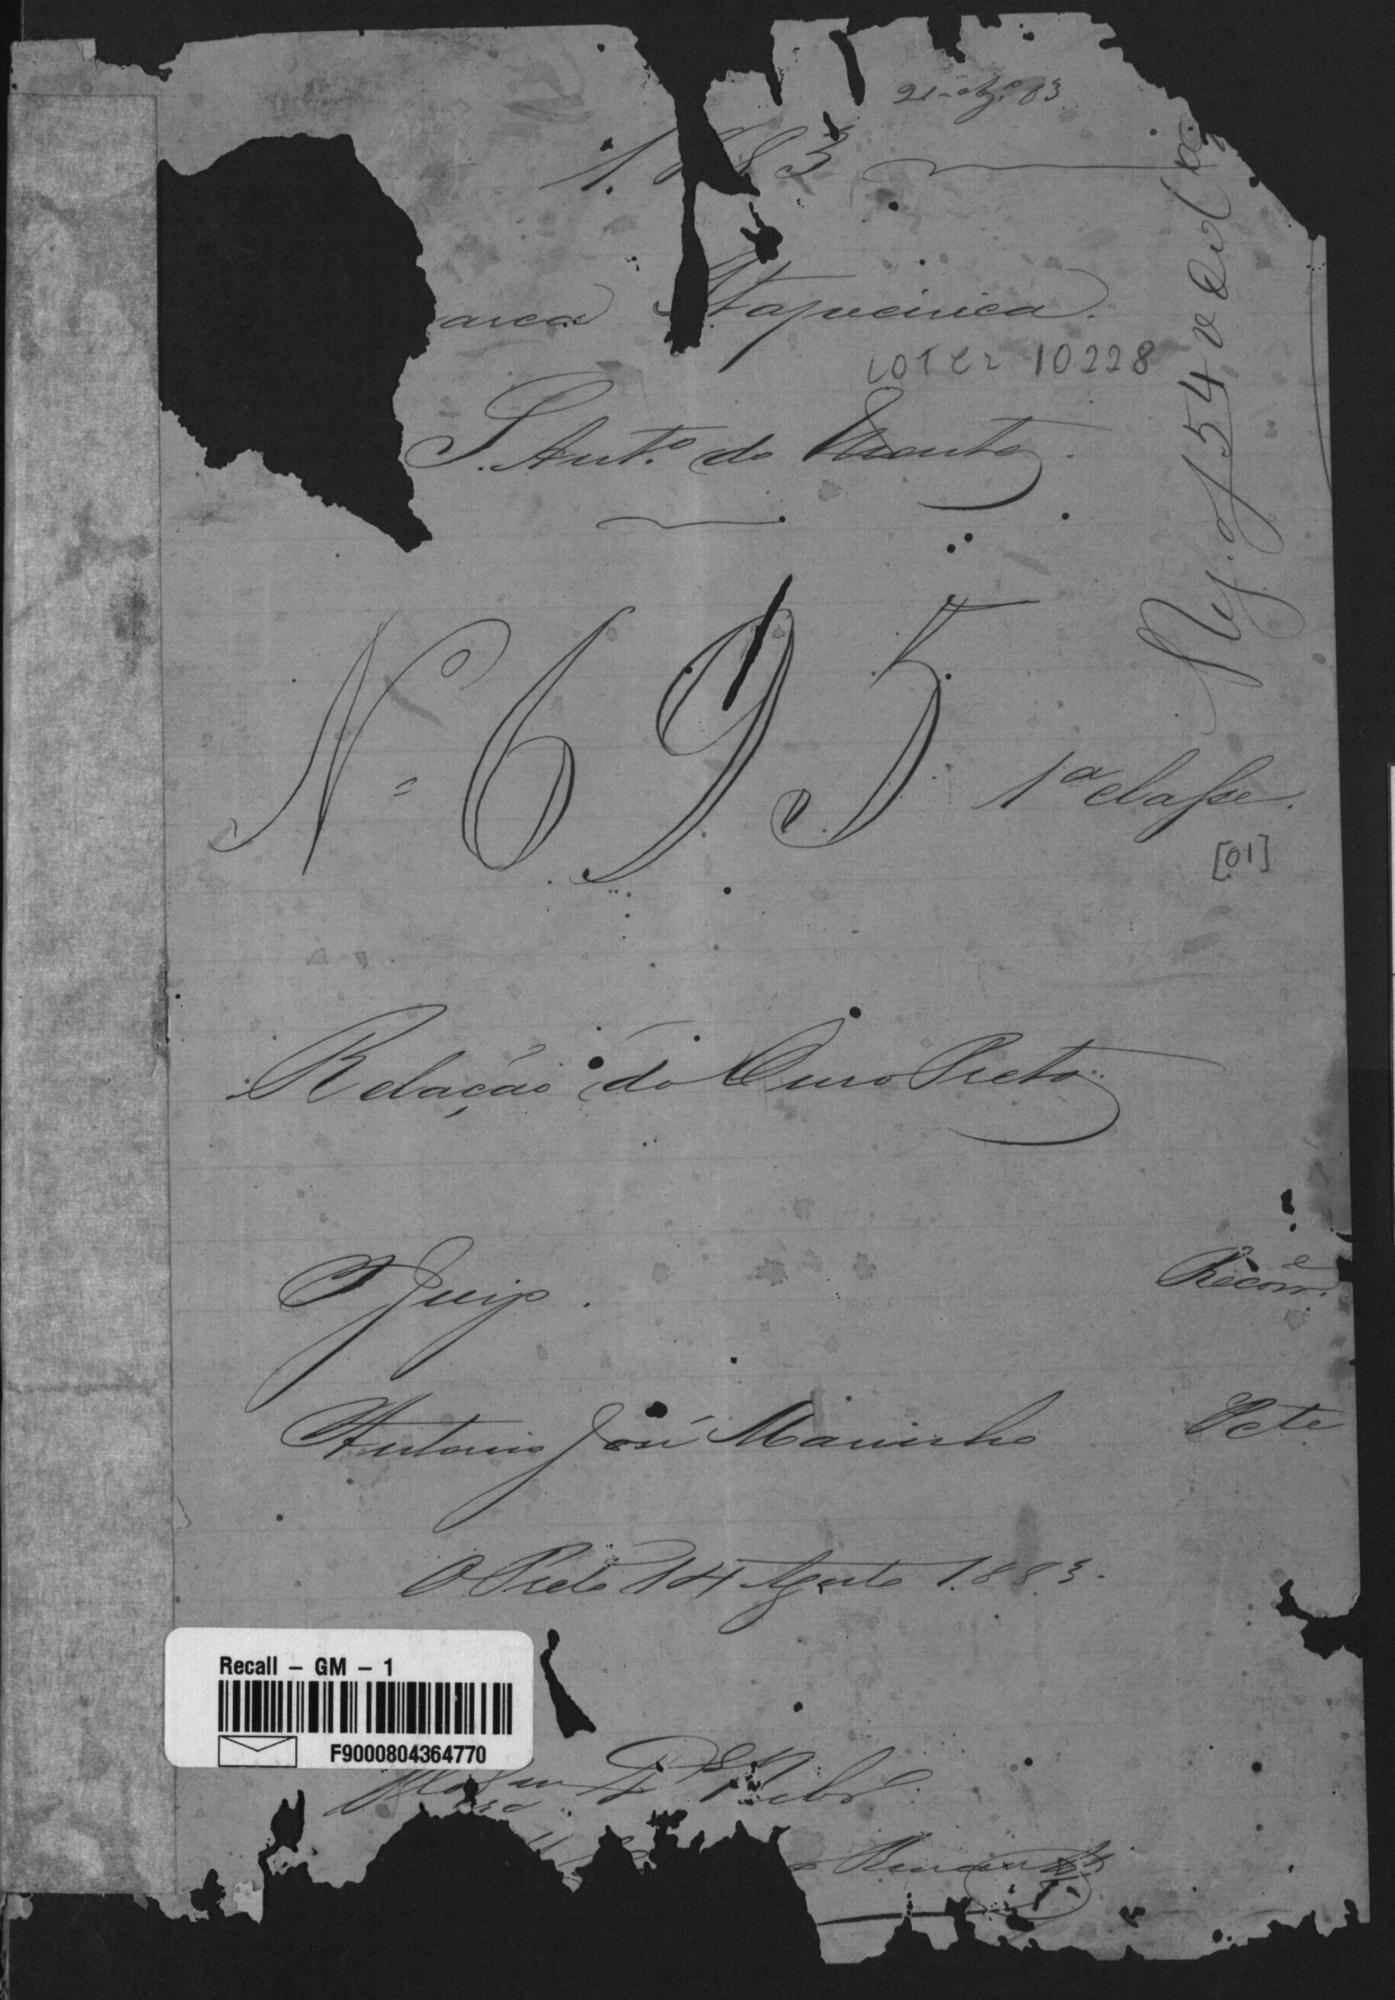 21-Ag.º 83
1883
arca Itapecirica.
LOTE 10228
S. Ant.º do Monte
Nº 695
1ª classe.
[01]
Relação do Ouro Preto
O Juiz.
Recorr.e
Antonio José Marinho
O Preto 14 Agosto 1.883.
Recall – GM – 1
F9000804364770